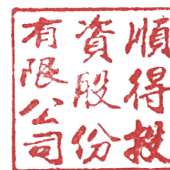 順得投
資股份
有限公司